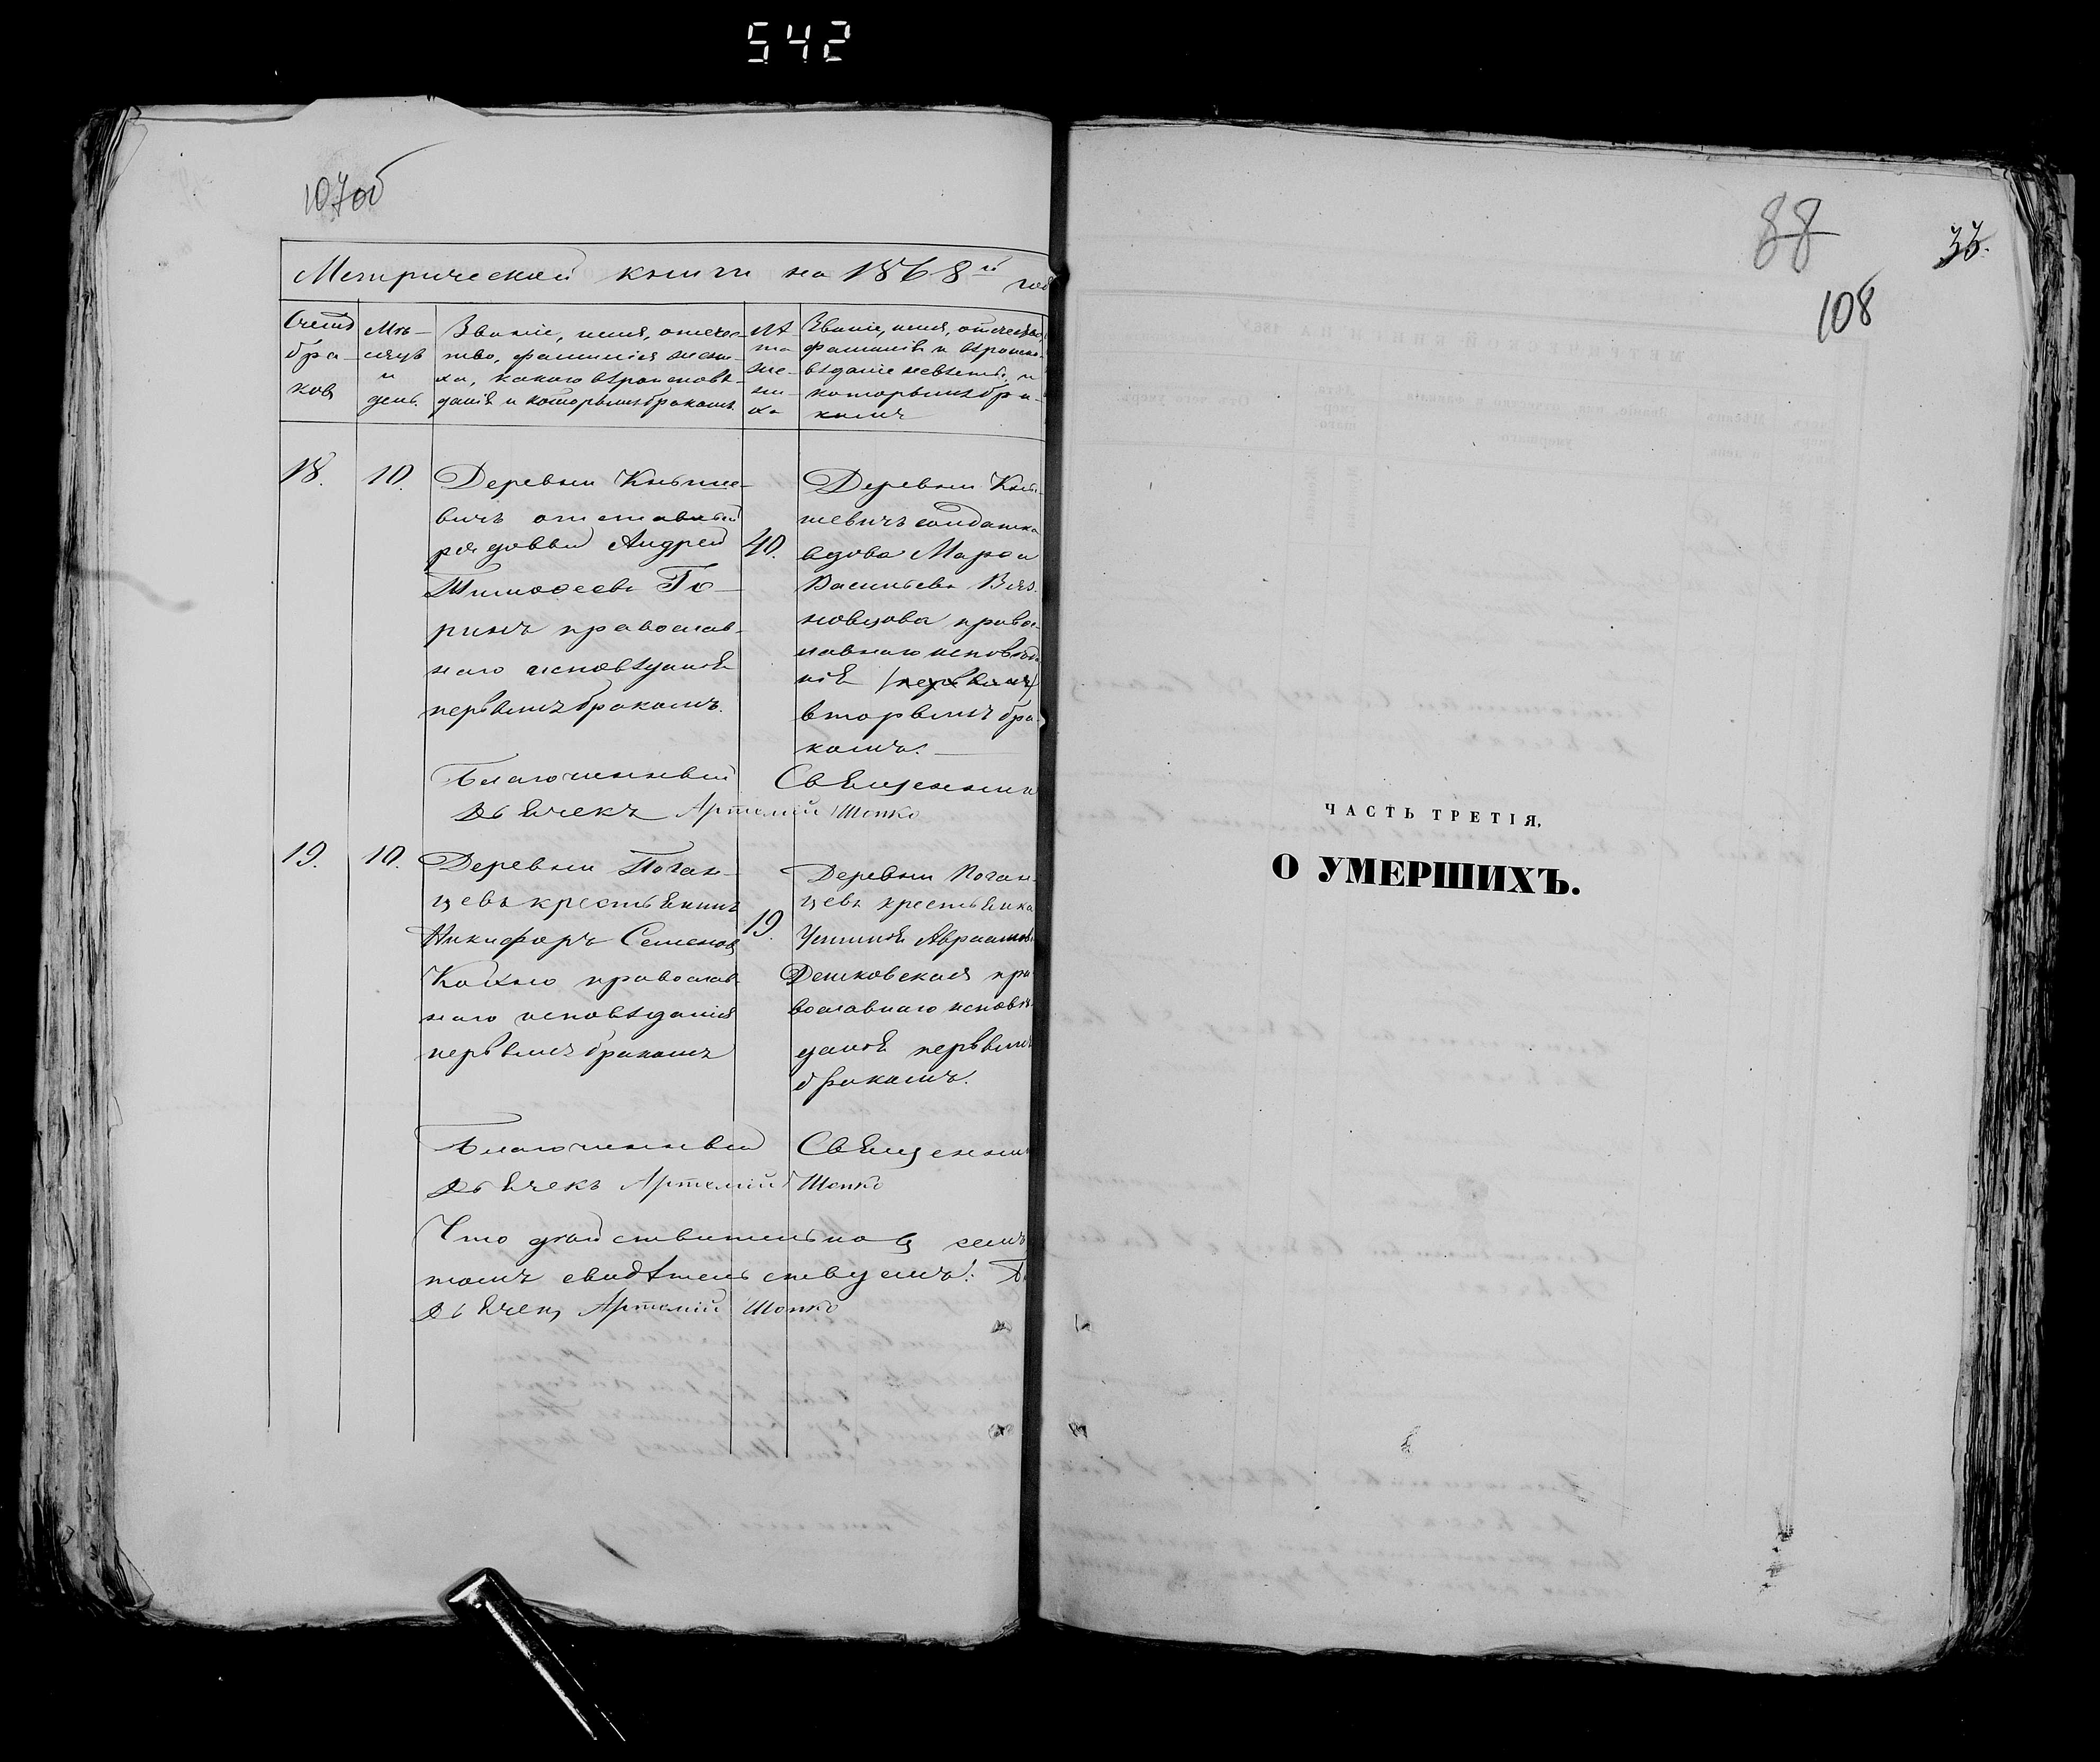 542
107об
Метрической книги на 1868й год
Счетъ
бра-
ковъ
Мѣ-
сяцъ
и
день.
Званіе, имя, отчес-
тво, фамилія жени-
ха, какого вѣроисповѣ-
данія и которымъ бракомъ.
Лѣ
та
же-
ни-
ха
Званіе, имя, отчество,
фамилія и вѣроиспо-
вѣданіе невѣсты, и
которымъ бра-
комъ
18.
10.
Деревни Кныше-
вичъ отставный
рядовый Андрей
Тимофеевъ Го-
ринъ православ-
наго исповѣданія
первымъ бракомъ.
40.
Деревни Кны-
шевичъ солдатка
вдова Марѳа
Васильева
православнаго исповѣда
нія (первымъ)
вторымъ бра-
комъ.
Благочинный Священни
Дьячекъ Артемій Шопко
19.
10.
Деревни Поган-
цевъ крестьянинъ
Никифоръ Семеновъ
православ-
наго исповѣданія
первымъ бракомъ
19.
Деревни Поган-
цевъ крестьянка
Устинія Авраамов
Демковская пра-
вославнаго исповѣ-
данія первымъ
бракомъ.
Благочинный Священни
Дьячекъ Артемій Шопко
Что дѣйствительно въ семъ
томъ свидѣтельствуемъ:
Дьячекъ Артемій Шопко
88
33.
108
ЧАСТЬ ТРЕТІЯ.
О УМЕРШИХЪ.